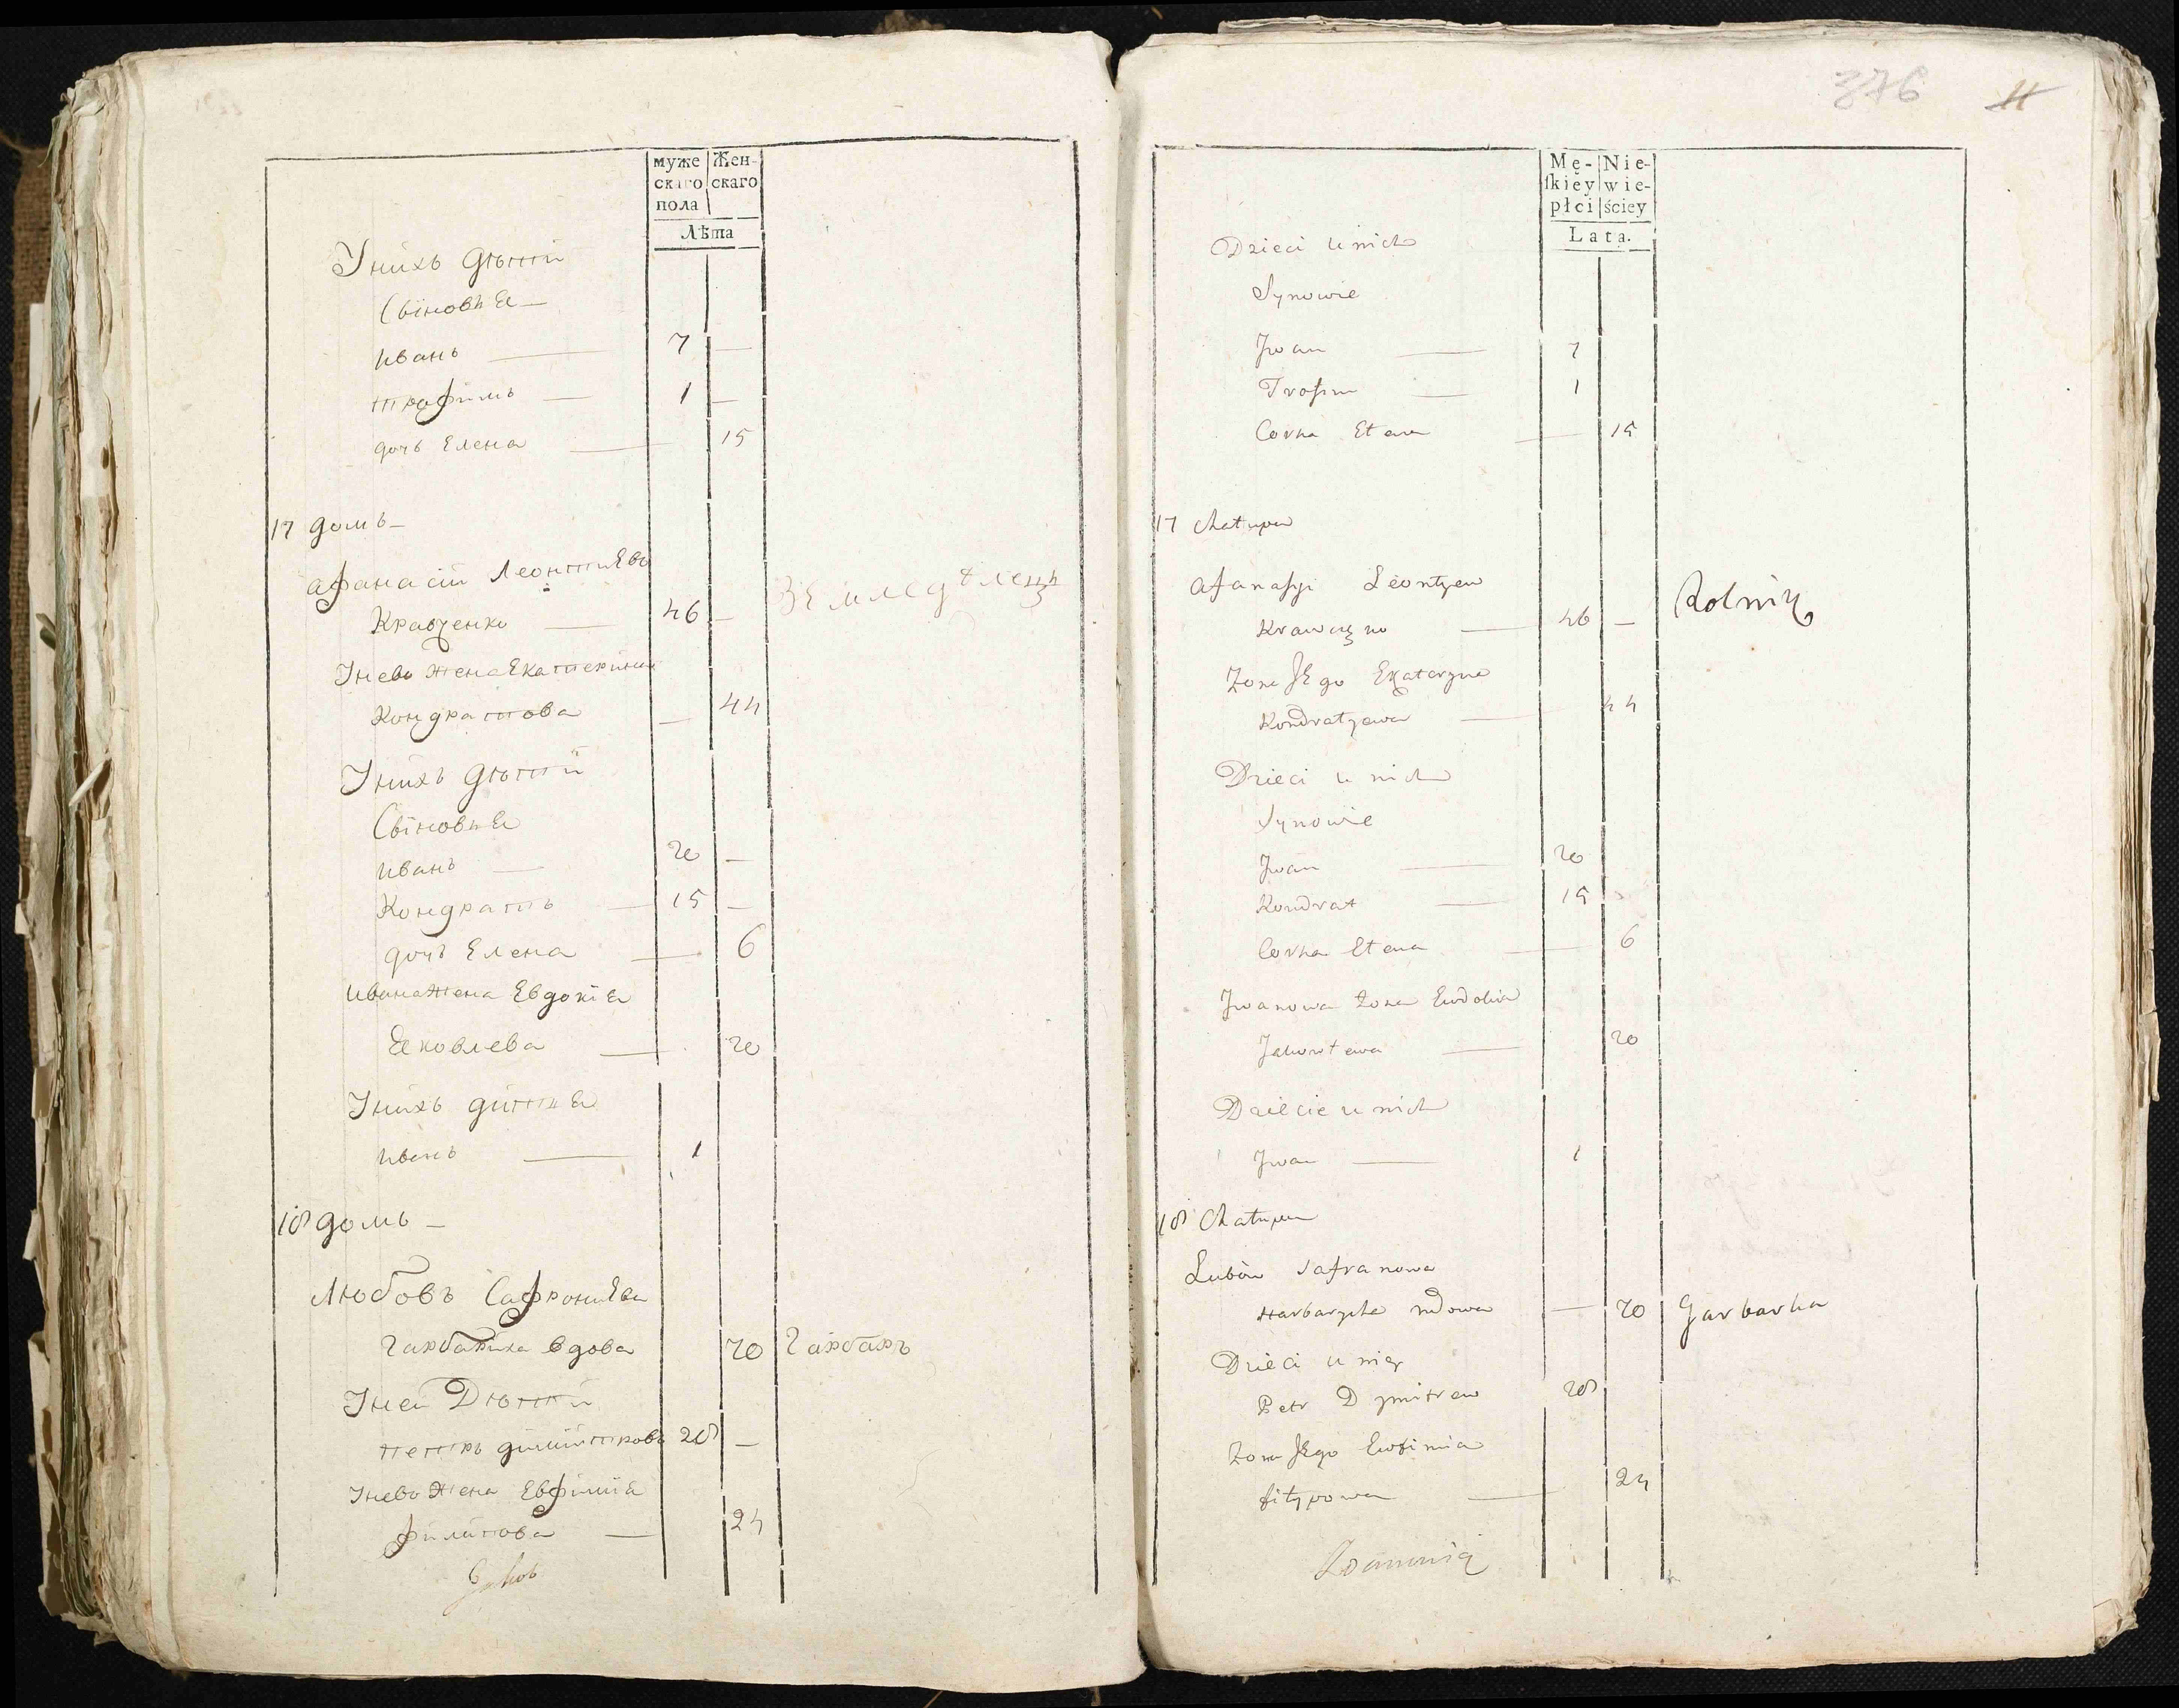 муже
скаго
пола
Жен-
скаго
Лѣта
Унихъ дѣти
Сыновья
иванъ — 7 —
трафимъ — 1 —
дочь Елена — 15
17 домъ —
афанасіи Леонтиевъ
Кравченко — 46 —
Землед‍ѣлецъ
Унево жена Екатерина
Кондратова — 44
Унихъ дѣти
Сыновья
иванъ — 20 —
Кондратъ — 15 —
дочь Елена — 6
ивана жена Евдокия
Яковлева — 20
Унихъ дитя
иванъ — 1
18 домъ —
Любовъ Сафрониева
гарбариха вдова 70 Гарбаръ
Уней Дѣти
петръ димитровъ 28 —
Унево жена Евфимия
филипова — 24
376 11
Mę-
skiey
płci
Nie-
wie-
ściey
Lata.
Dzieci u nich
Synowie
Jwan — 7
Trofim — 1
Corka Elena — 15
17 Chałupa
Afanassyi Leontyew
Krawczęko — 46 —
Rolnik
Zona Jego Ekateryna
Kondratyewa — 44
Dzieci u nich
Synowie
Jwan — 20
Kondrat — 15
Corka Elena — 6
Jwanowa Zona Ewdokia
Jakowlewa — 20
Dziecie u nich
Jwan — 1
18 Chałupa
Lubow Safranowa
Harbarycha wdowa — 70 Garbarka
Dzieci u niey
Petr Dymitrew 28
Zona Jego Ewfimia
filypowa — 24